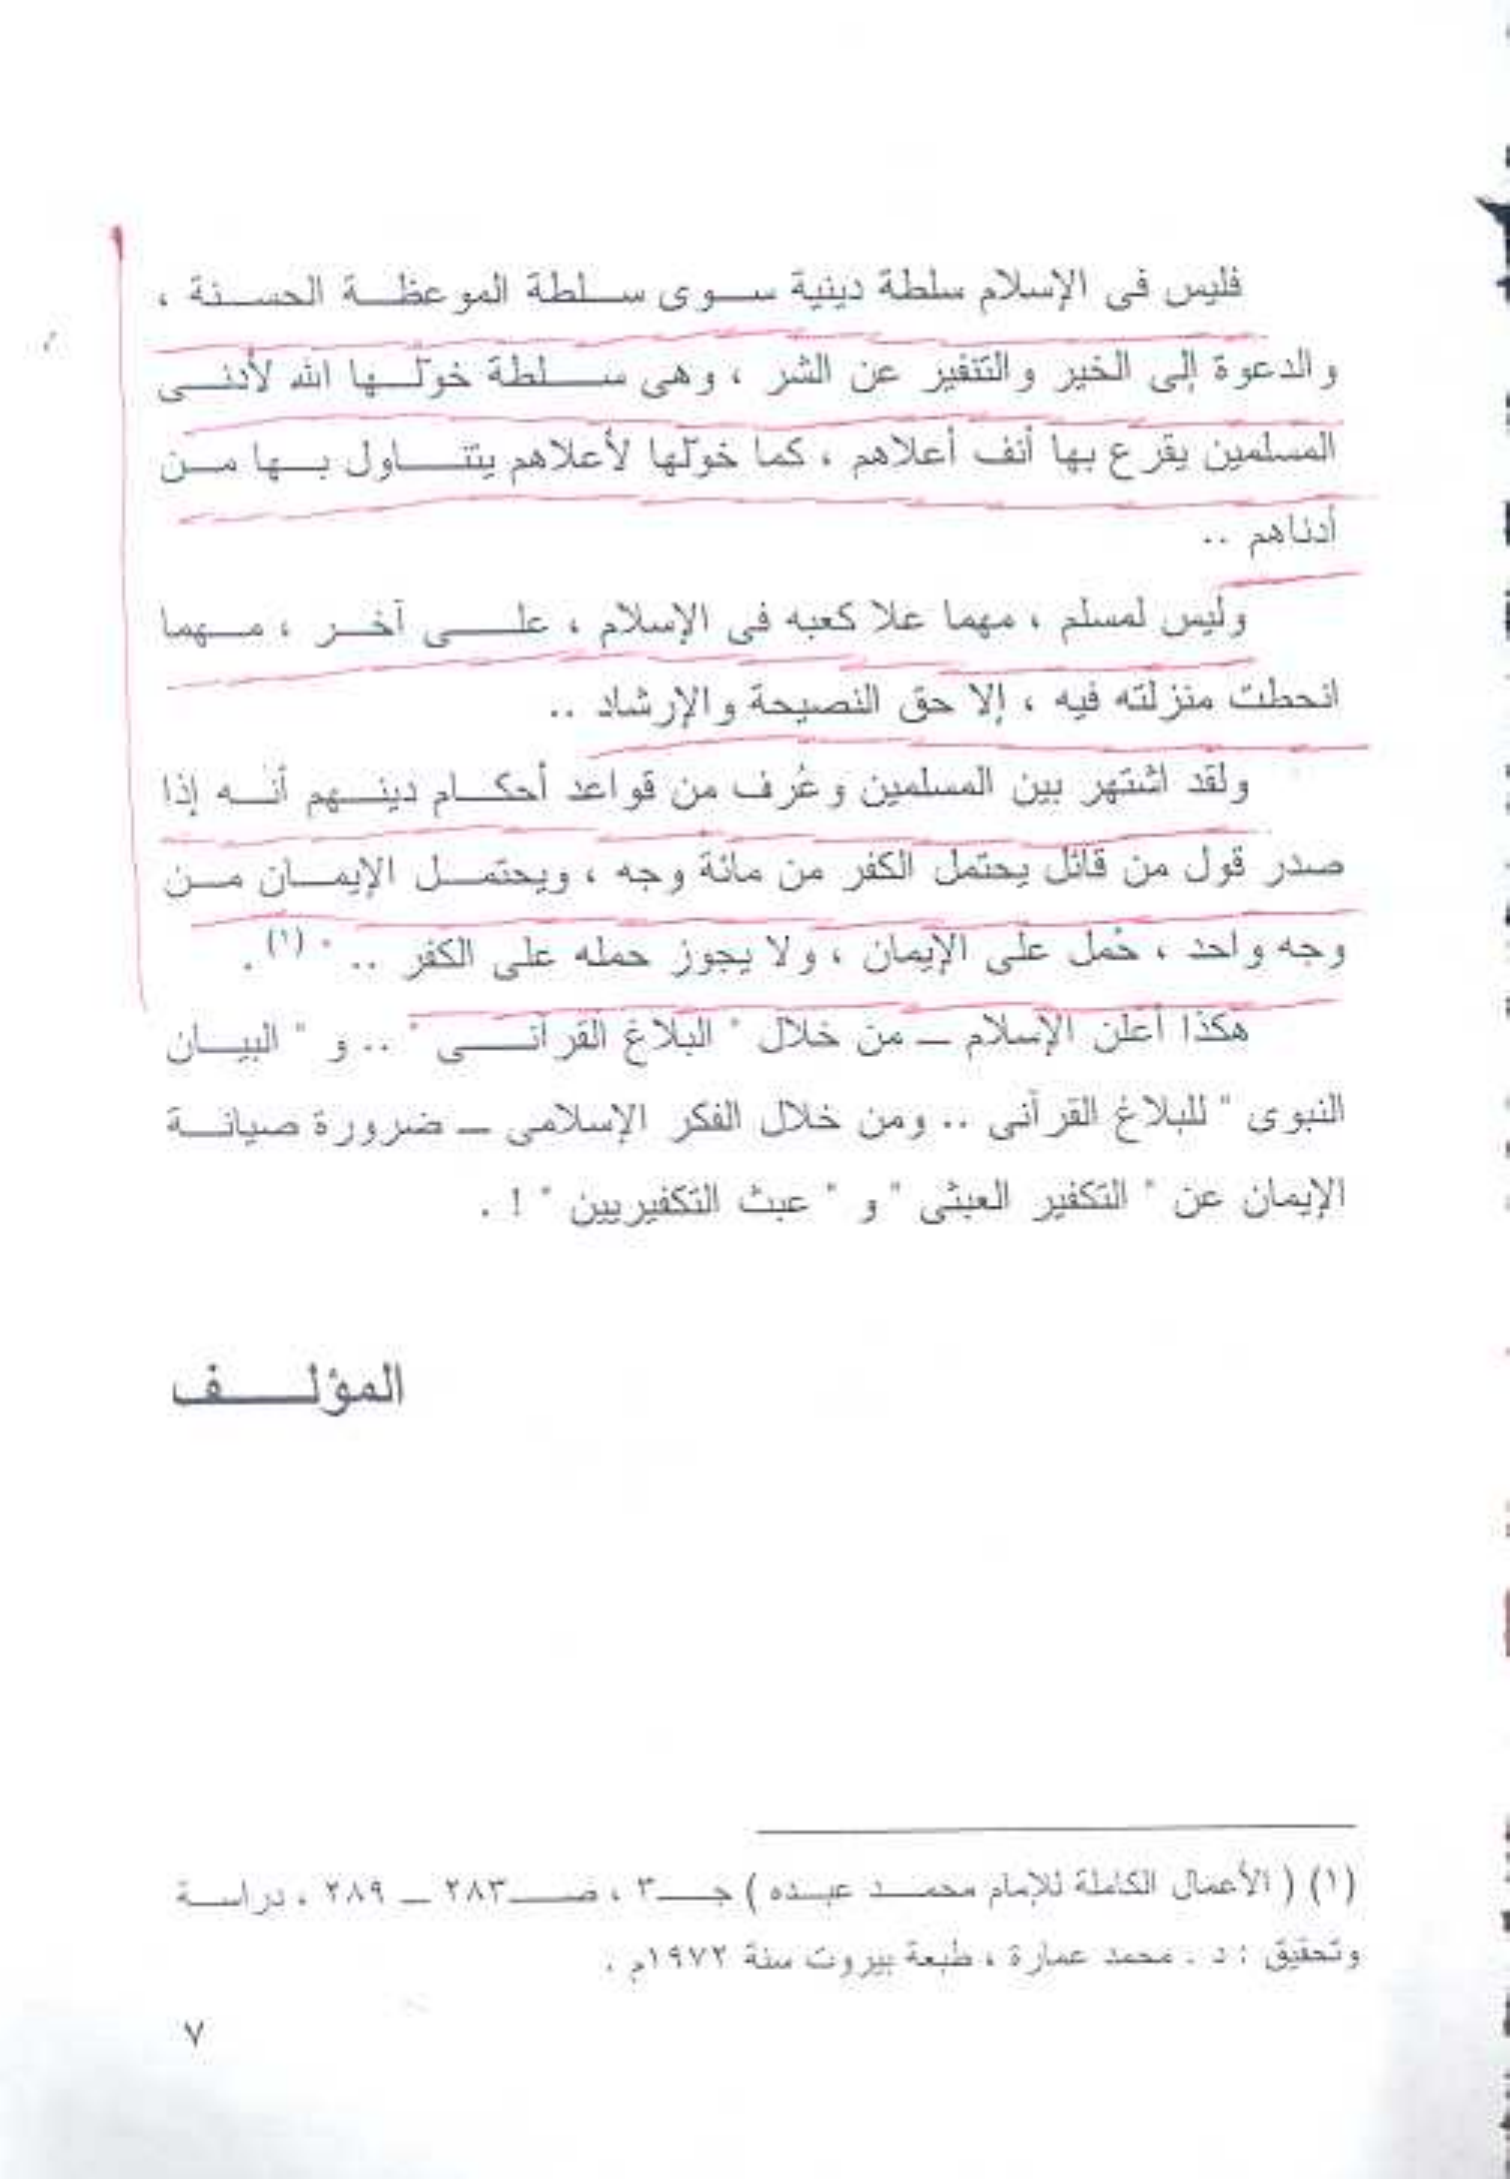 فليس فى الإسلام سلطة دينية سوى سلطة الموعظة الحسنة ،
والدعوة إلى الخير والتنفير عن الشر ، وهى سلطة خوّلها الله لأدنى
المسلمين يقرع بها أنف أعلاهم ، كما خوّلها لأعلاهم يتناول بها من
أدناهم ..
وليس لمسلم ، مهما علا كعبه فى الإسلام ، على آخر ، مهما
انحطت منزلته فيه ، إلا حق النصيحة والإرشاد ..
ولقد اشتهر بين المسلمين وعُرف من قواعد أحكام دينهم أنه إذا
صدر قول من قائل يحتمل الكفر من مائة وجه ، ويحتمل الإيمان من
وجه واحد ، حُمل على الإيمان ، ولا يجوز حمله على الكفر .. " (١) .
هكذا أعلن الإسلام ــ من خلال " البلاغ القرآنى " .. و " البيان
النبوى " للبلاغ القرآنى .. ومن خلال الفكر الإسلامى ــ ضرورة صيانة
الإيمان عن " التكفير العبثى " و " عبث التكفيريين " ! .
المؤلف
(١) ( الأعمال الكاملة للإمام محمد عبده ) جـ٣ ، صـ٢٨٣ ــ ٢٨٩ ، دراسة
وتحقيق : د . محمد عمارة ، طبعة بيروت سنة ١٩٧٢م .
٧